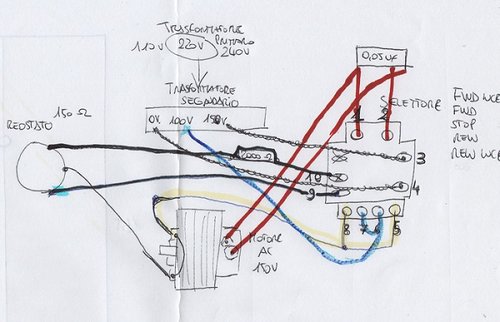 TRASFORMATORE
PRIMARIO
110V 220V 240V
0,05 uF
TRASFORMATORE
SECONDARIO
SELETTORE
FWD
STOP
REW
150 Ω
REOSTATO
0V 100V 150V
1 2
3
10
4
9
8 7 6 5
MOTORE
AC
150V